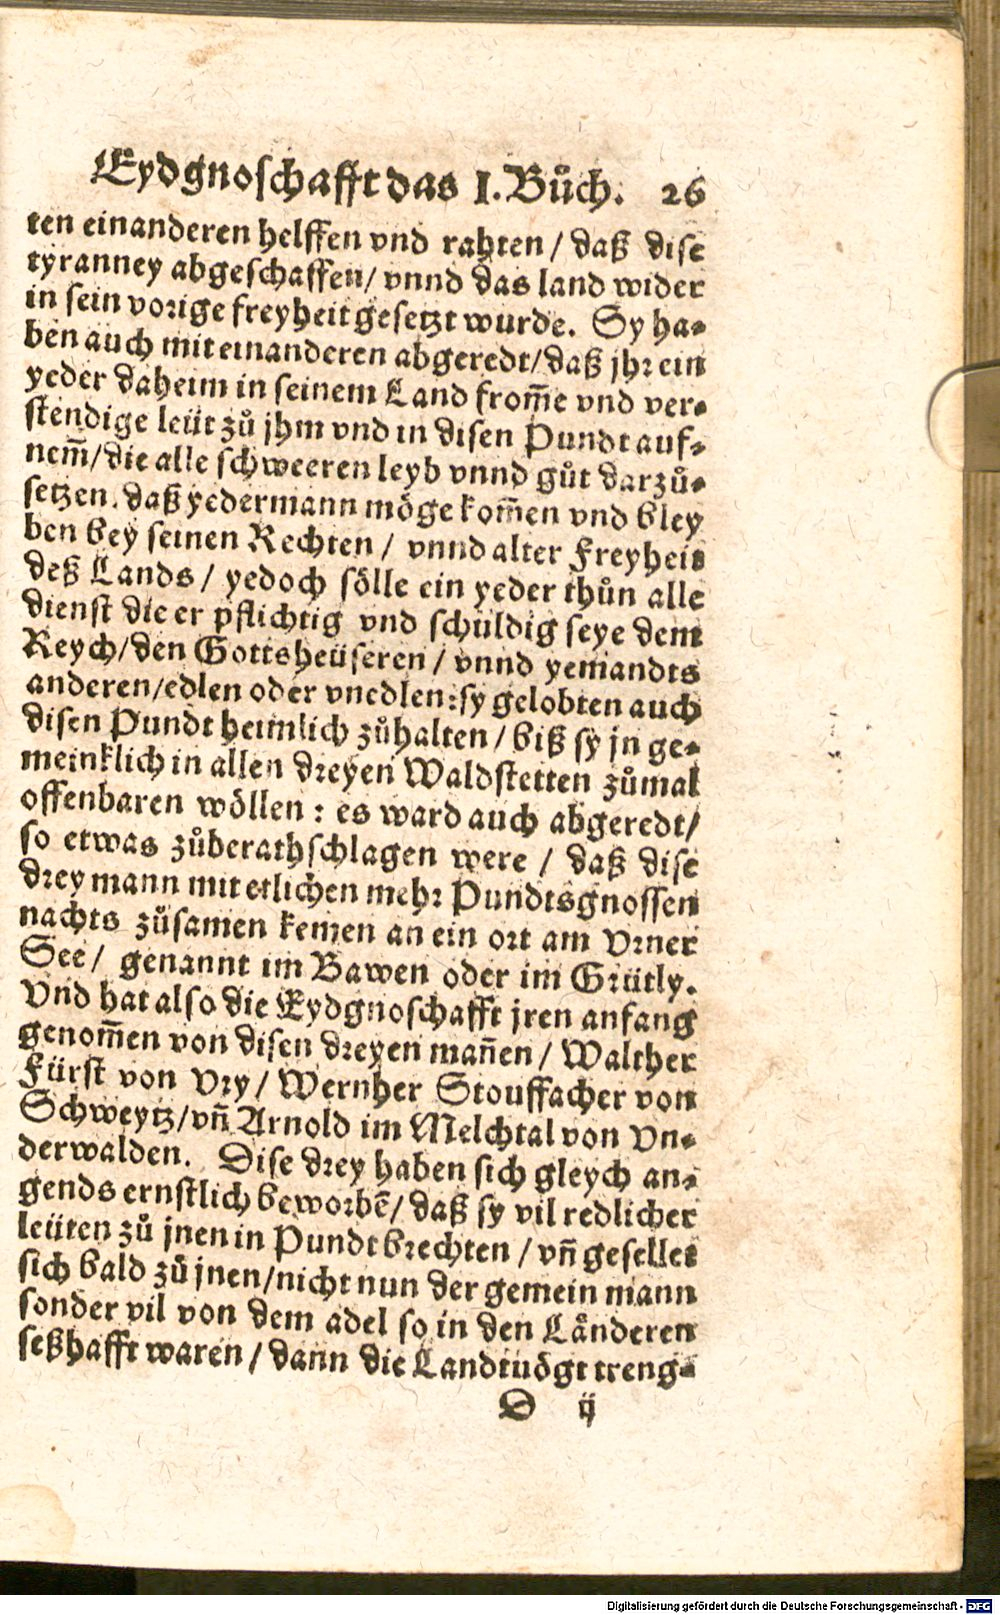 Eydgnoschafft das I. Bůch. 26
ten einanderen helffen vnd rahten / daß dise
tyranney abgeschaffen / vnnd das land wider
in sein vorige freyheit gesetzt wurde. Sy ha-
ben auch mit einanderen abgeredt / daß jhr ein
yeder daheim in seinem Land from̃e vnd ver-
stendige leüt zů jhm vnd in disen Pundt auf-
nem̃ / die alle schweeren leyb vnnd gůt darzů-
setzen. daß yedermann möge kom̃en vnd bley
ben bey seinen Rechten / vnnd alter Freyheit
deß Lands / yedoch sölle ein yeder thůn alle
dienst die er pflichtig vnd schuldig seye dem
Reych / den Gottsheüseren / vnnd yemandts
anderen / edlen oder vnedlen: sy gelobten auch
disen Pundt heimlich zůhalten / biß sy jn ge-
meinklich in allen dreyen Waldstetten zůmal
offenbaren wöllen : es ward auch abgeredt /
so etwas zůberathschlagen were / daß dise
drey mann mit etlichen mehr Pundtsgnossen
nachts zůsamen kemen an ein ort am Vrner
See / genannt im Bawen oder im Grütly.
Vnd hat also die Eydgnoschafft jren anfang
genom̃en von disen dreyen mañen / Walther
Fürst von Vry / Wernher Stouffacher von
Schweytz / vñ Arnold im Melchtal von Vn-
derwalden. Dise drey haben sich gleych an-
gends ernstlich beworbẽ / daß sy vil redlicher
leüten zů jnen in Pundt brechten / vñ gesellet
sich bald zů jnen / nicht nun der gemein mann
sonder vil von dem adel so in den Länderen
seßhafft waren / dann die Landtuögt treng-
D ij
Digitalisierung gefördert durch die Deutsche Forschungsgemeinschaft - DFG